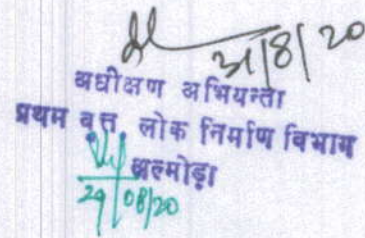 31/8/20
अधीक्षण अभियन्ता
प्रथम वृत्त, लोक निर्माण विभाग
अल्मोड़ा
29/08/20